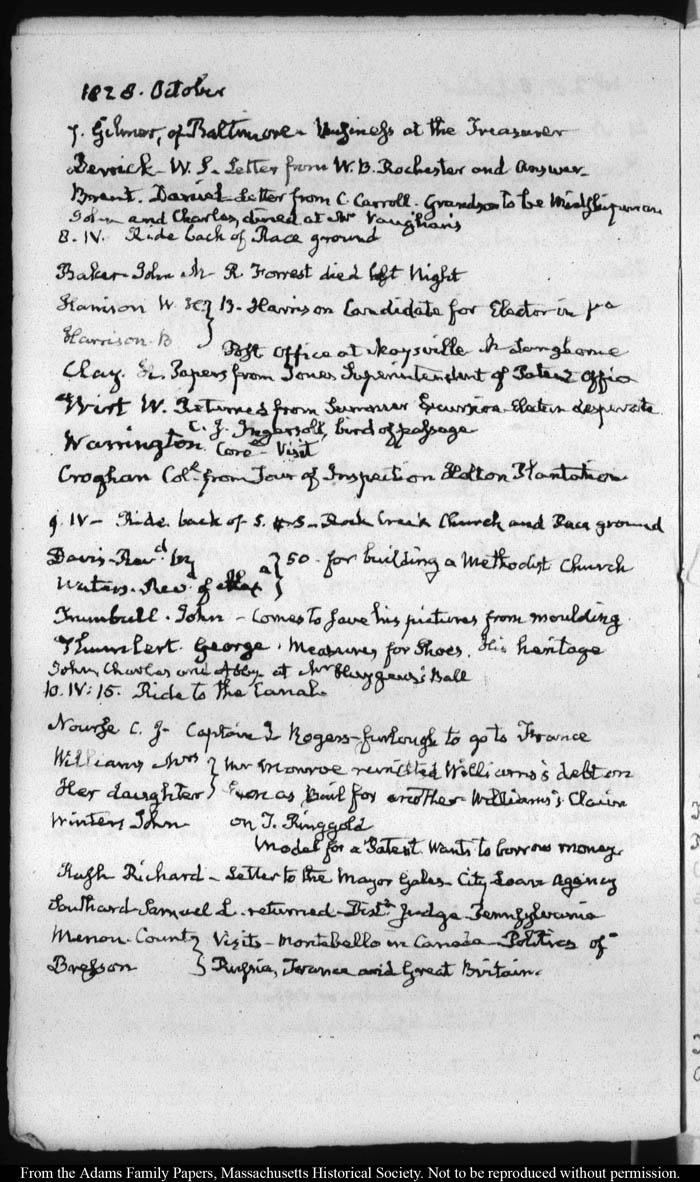 1828. October
7. Gilmor, of Baltimore. Business at the Treasurer
Derrick. W. S. Letter from W. B. Rochester and answer.
Brent. Daniel. Letter from C. Carroll. Grandson to be Midshipman
John and Charles, dined at Mr Vaughan's
8. IV. Ride back of Race ground
Baker John M R. Forrest died last Night
Harrison W. H. } B. Harrison Candidate for Elector in Pa
Harrison. B }
Post Office at Maysville M Langhorne
Clay. H. Papers from Jones Superintendent of Patent Office
Wirt W. Returned from Summer Excursion. Election desperate
C. J. Ingersoll, bird of passage
Warrington. Visit
Croghan Coll. from Tour of Inspection Holton Plantation
9. IV– Ride back of Rock Creek Church and Race ground
Davis. Revd } 50. for building a Methodist Church
Waters. Revd of }
Trumbull. John – Comes to save his pictures from moulding.
George. Measures for Shoes. His heritage
John, Charles and Abby at Mr Huygens's Ball
10. IV:15. Ride to the Canal.
Nourse C. J. Captain Rogers–furlough to go to France
Williams Mrs } Mr Monroe remitted Williams's debt on
Her daughter } as Bail for another Williams's Claim
Winters John on T. Ringgold
Model for a Patent. Wants to borrow money.
Rush Richard – Letter to the Mayor Gales. City Loan Agency
Southard Samuel L. returned–Distt Judge Pennsylvania
Menou. Count } Visits–Montebello in Canada–Politics of
Bresson } Russia, France and Great Britain.
From the Adams Family Papers, Massachusetts Historical Society. Not to be reproduced without permission.